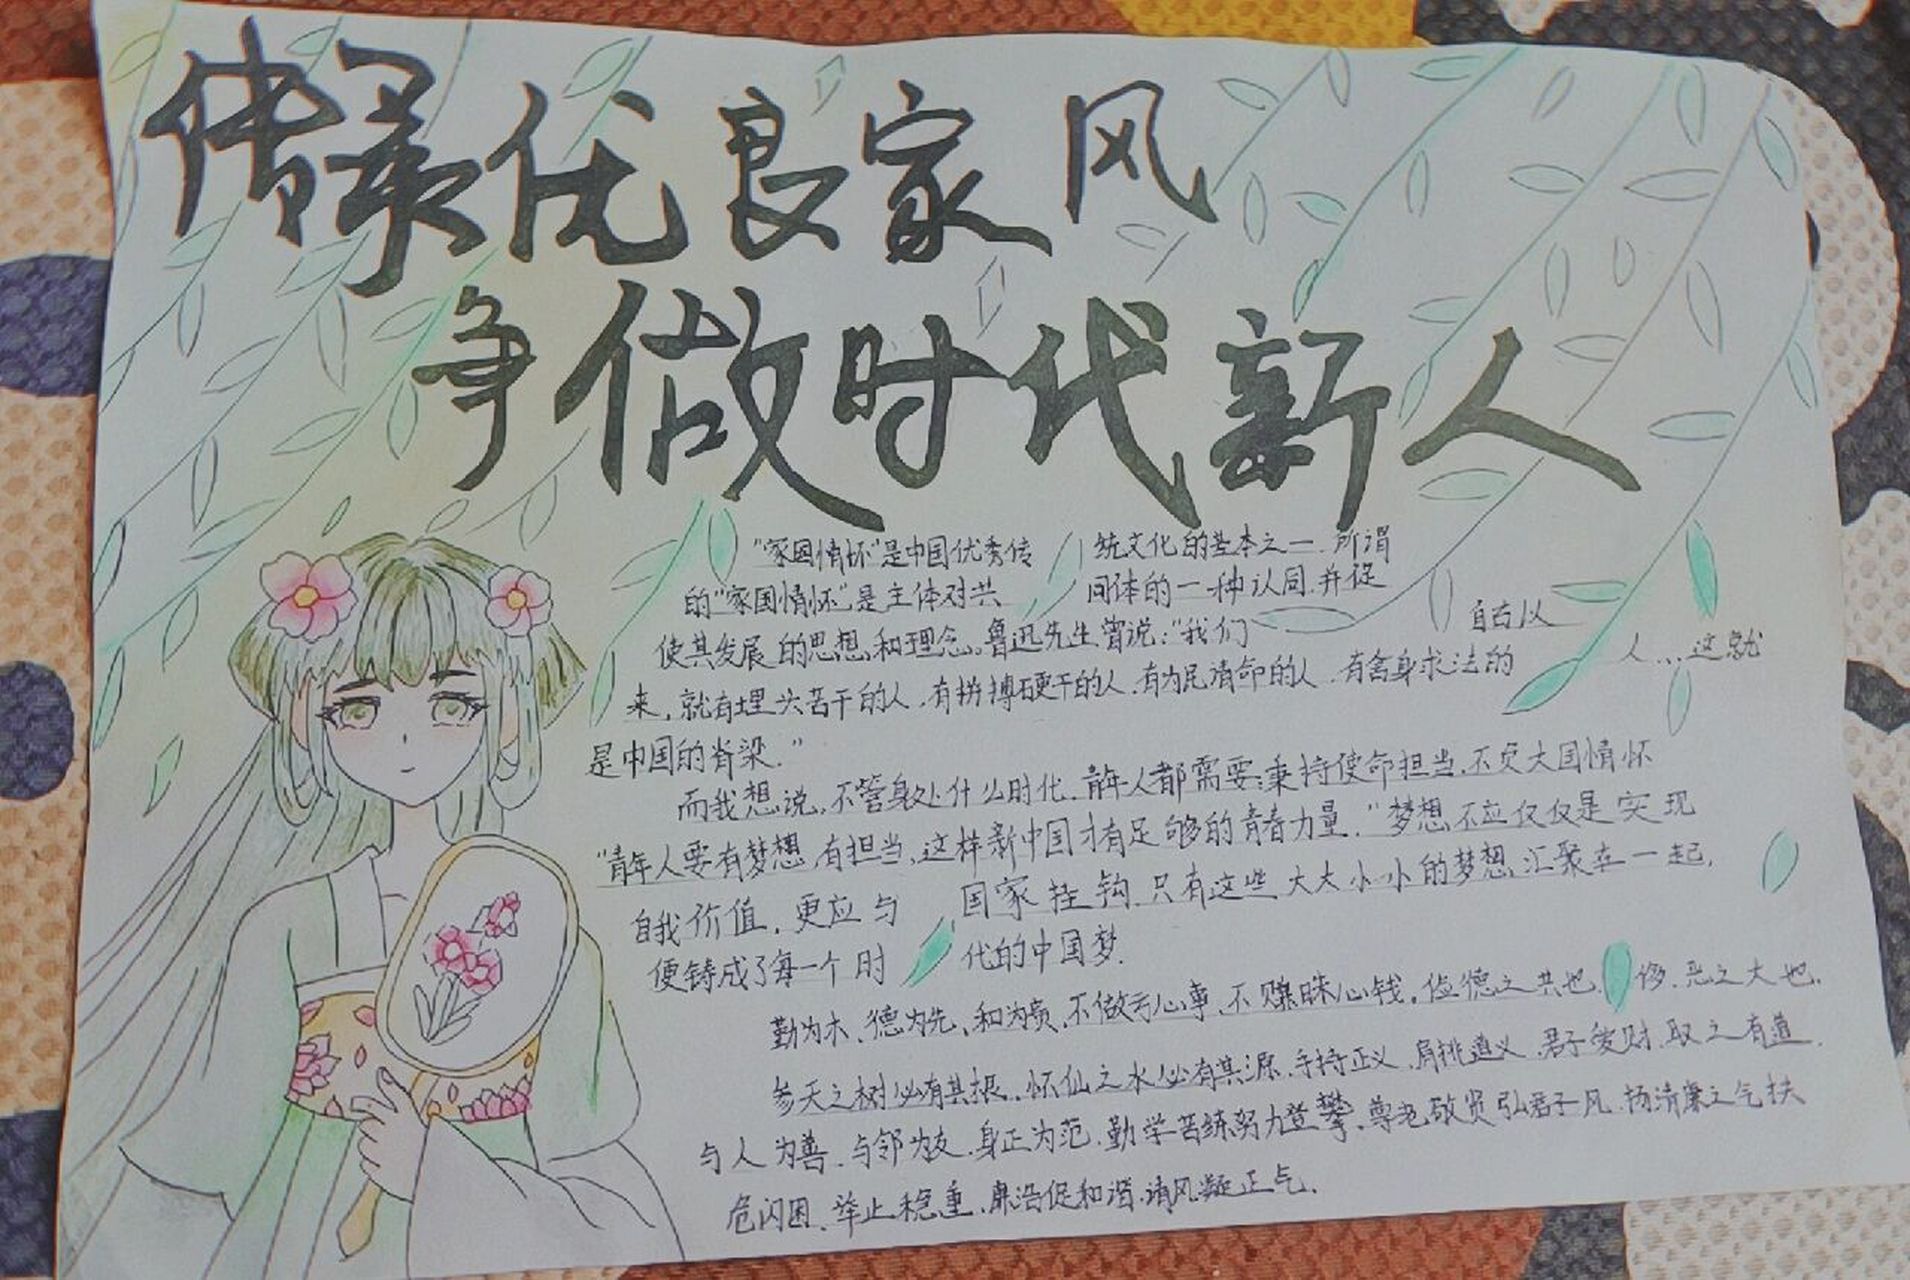 传承优良家风
争做时代新人
"家国情怀"是中国优秀传统文化的基本之一.所谓
的"家国情怀"是主体对共同体的一种认同.并促
使其发展的思想和理念。鲁迅先生曾说:"我们自古以
来,就有埋头苦干的人.有拼搏硬干的人.有为民请命的人.有舍身求法的人...这就
是中国的脊梁."
而我想说,不管身处什么时代.青年人都需要:秉持使命担当.不负大国情怀
"青年人要有梦想.有担当、这样新中国才有足够的青春力量."梦想不应仅仅是实现
自我价值,更应与国家挂钩.只有这些大大小小的梦想汇聚在一起,
便铸成了每一个时代的中国梦.
勤为本、德为先、和为贵、不做亏心事、不赚昧心钱。俭德之共也.侈.恶之大也.
参天之树必有其根.怀仙之水必有其源.手持正义.肩挑道义.君子爱财.取之有道.
与人为善.与邻为友.身正为范.勤学苦练努力登攀.尊老敬贤弘君子风.扬清廉之气扶
危闪困.举止稳重.廉洁促和谐.清风凝正气.